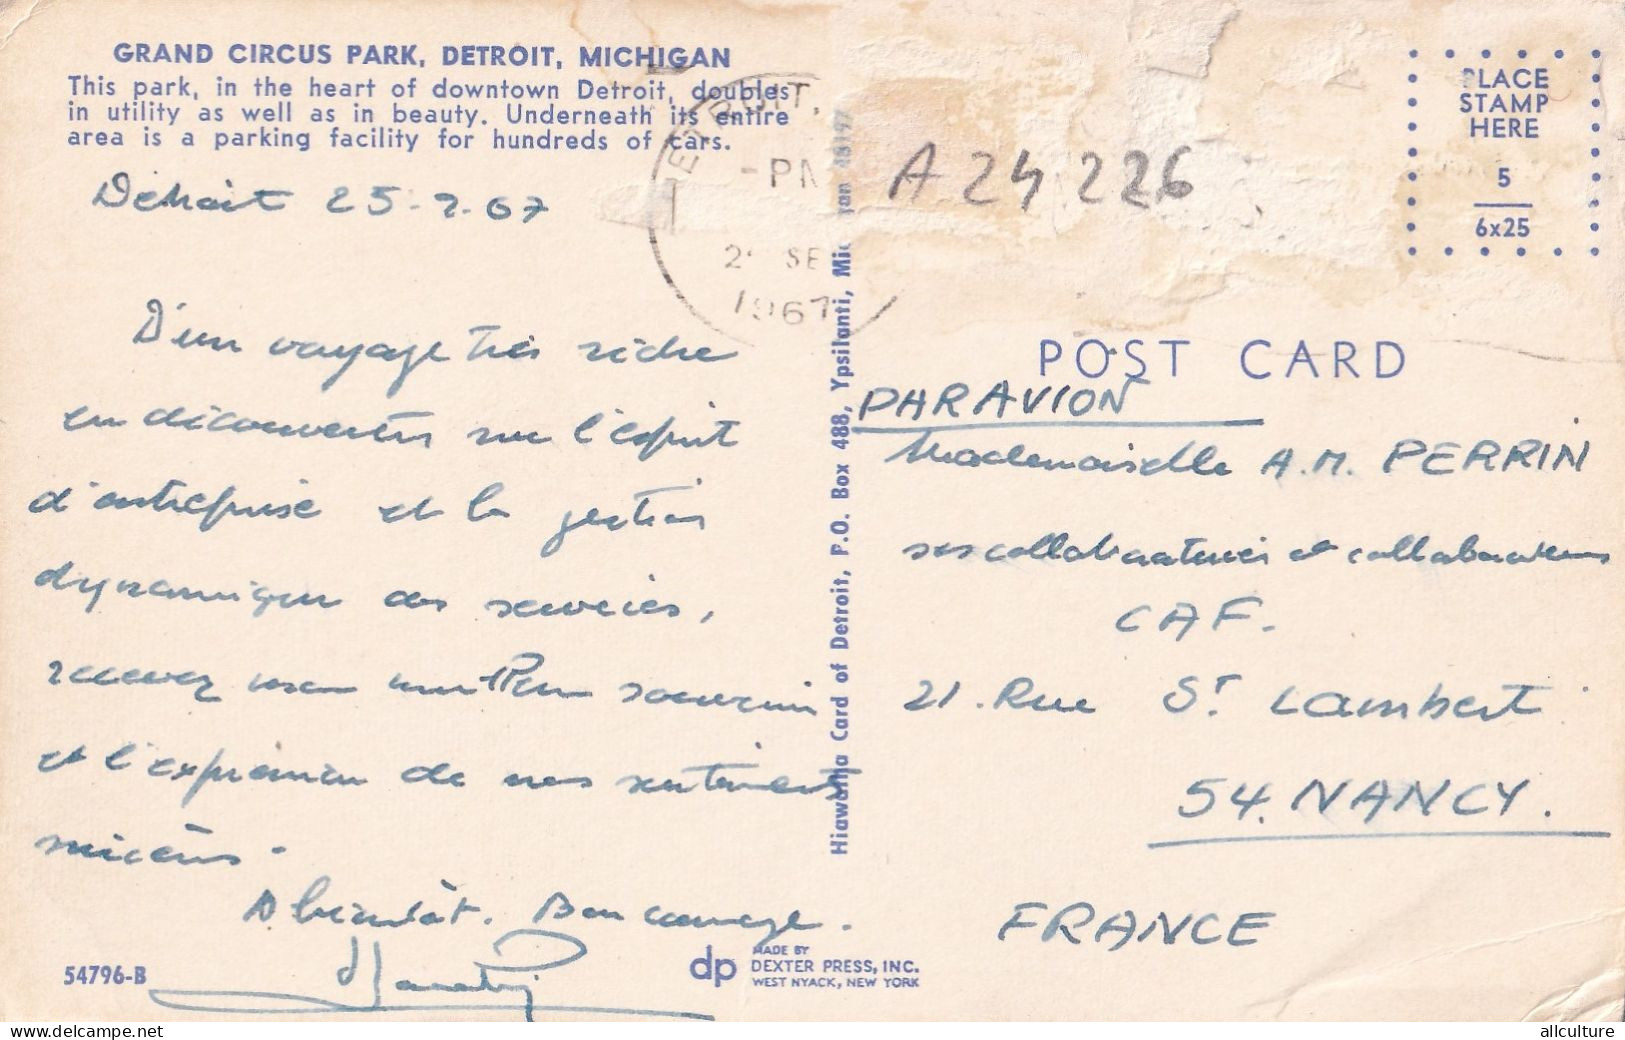 GRAND CIRCUS PARK, DETROIT, MICHIGAN
This park, in the heart of downtown Detroit, doubles
in utility as well as in beauty. Underneath its entire
area is a parking facility for hundreds of cars.
Détroit 25-9-67
D'un voyage très riche
en découvertes sur l'esprit
d'entreprise et la gestion
dynamique des services,
recevez mon meilleur souvenir
et l'expression de mes sentiments
sincères.
A bientôt. Bon courage.
54796-B
dp MADE BY
DEXTER PRESS, INC.
WEST NYACK, NEW YORK
Hiawatha Card of Detroit, P.O. Box 488, Ypsilanti, 48197
DETROIT,
-PM
SE
1967
A 24 226
PLACE
STAMP
HERE
5
6x25
POST CARD
PAR AVION
Mademoiselle A.M. PERRIN
ses collaboratrices et collaborateurs
CAF.
21. Rue St Lambert
54. NANCY.
FRANCE
delcampe.net
allculture